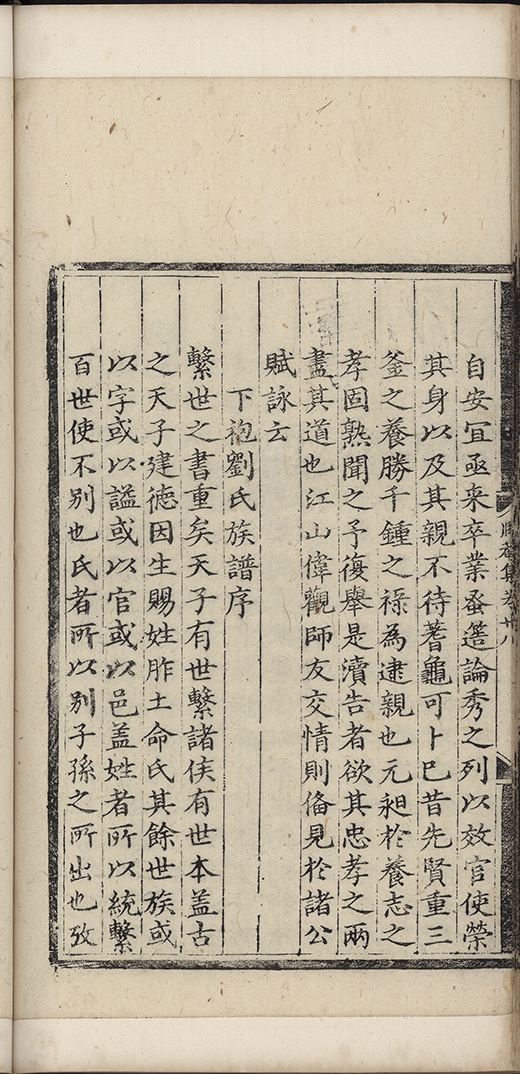 自安宜亟来卒業蚤簉論秀之列以效官使榮
其身以及其親不待蓍龜可卜巳昔先賢重三
釜之養勝千鍾之禄為逮親也元昶於養志之
孝固熟聞之予復舉是瀆告者欲其忠孝之兩
盡其道也江山偉觀師友交情則俻見於諸公
賦詠云
下袍劉氏族譜序
繫世之書重矣天子有世繫諸侯有世本盖古
之天子建徳因生賜姓胙土命氏其餘世族或
以字或以謚或以官或以邑盖姓者所以統繫
百世使不别也氏者所以别子孫之所出也攷